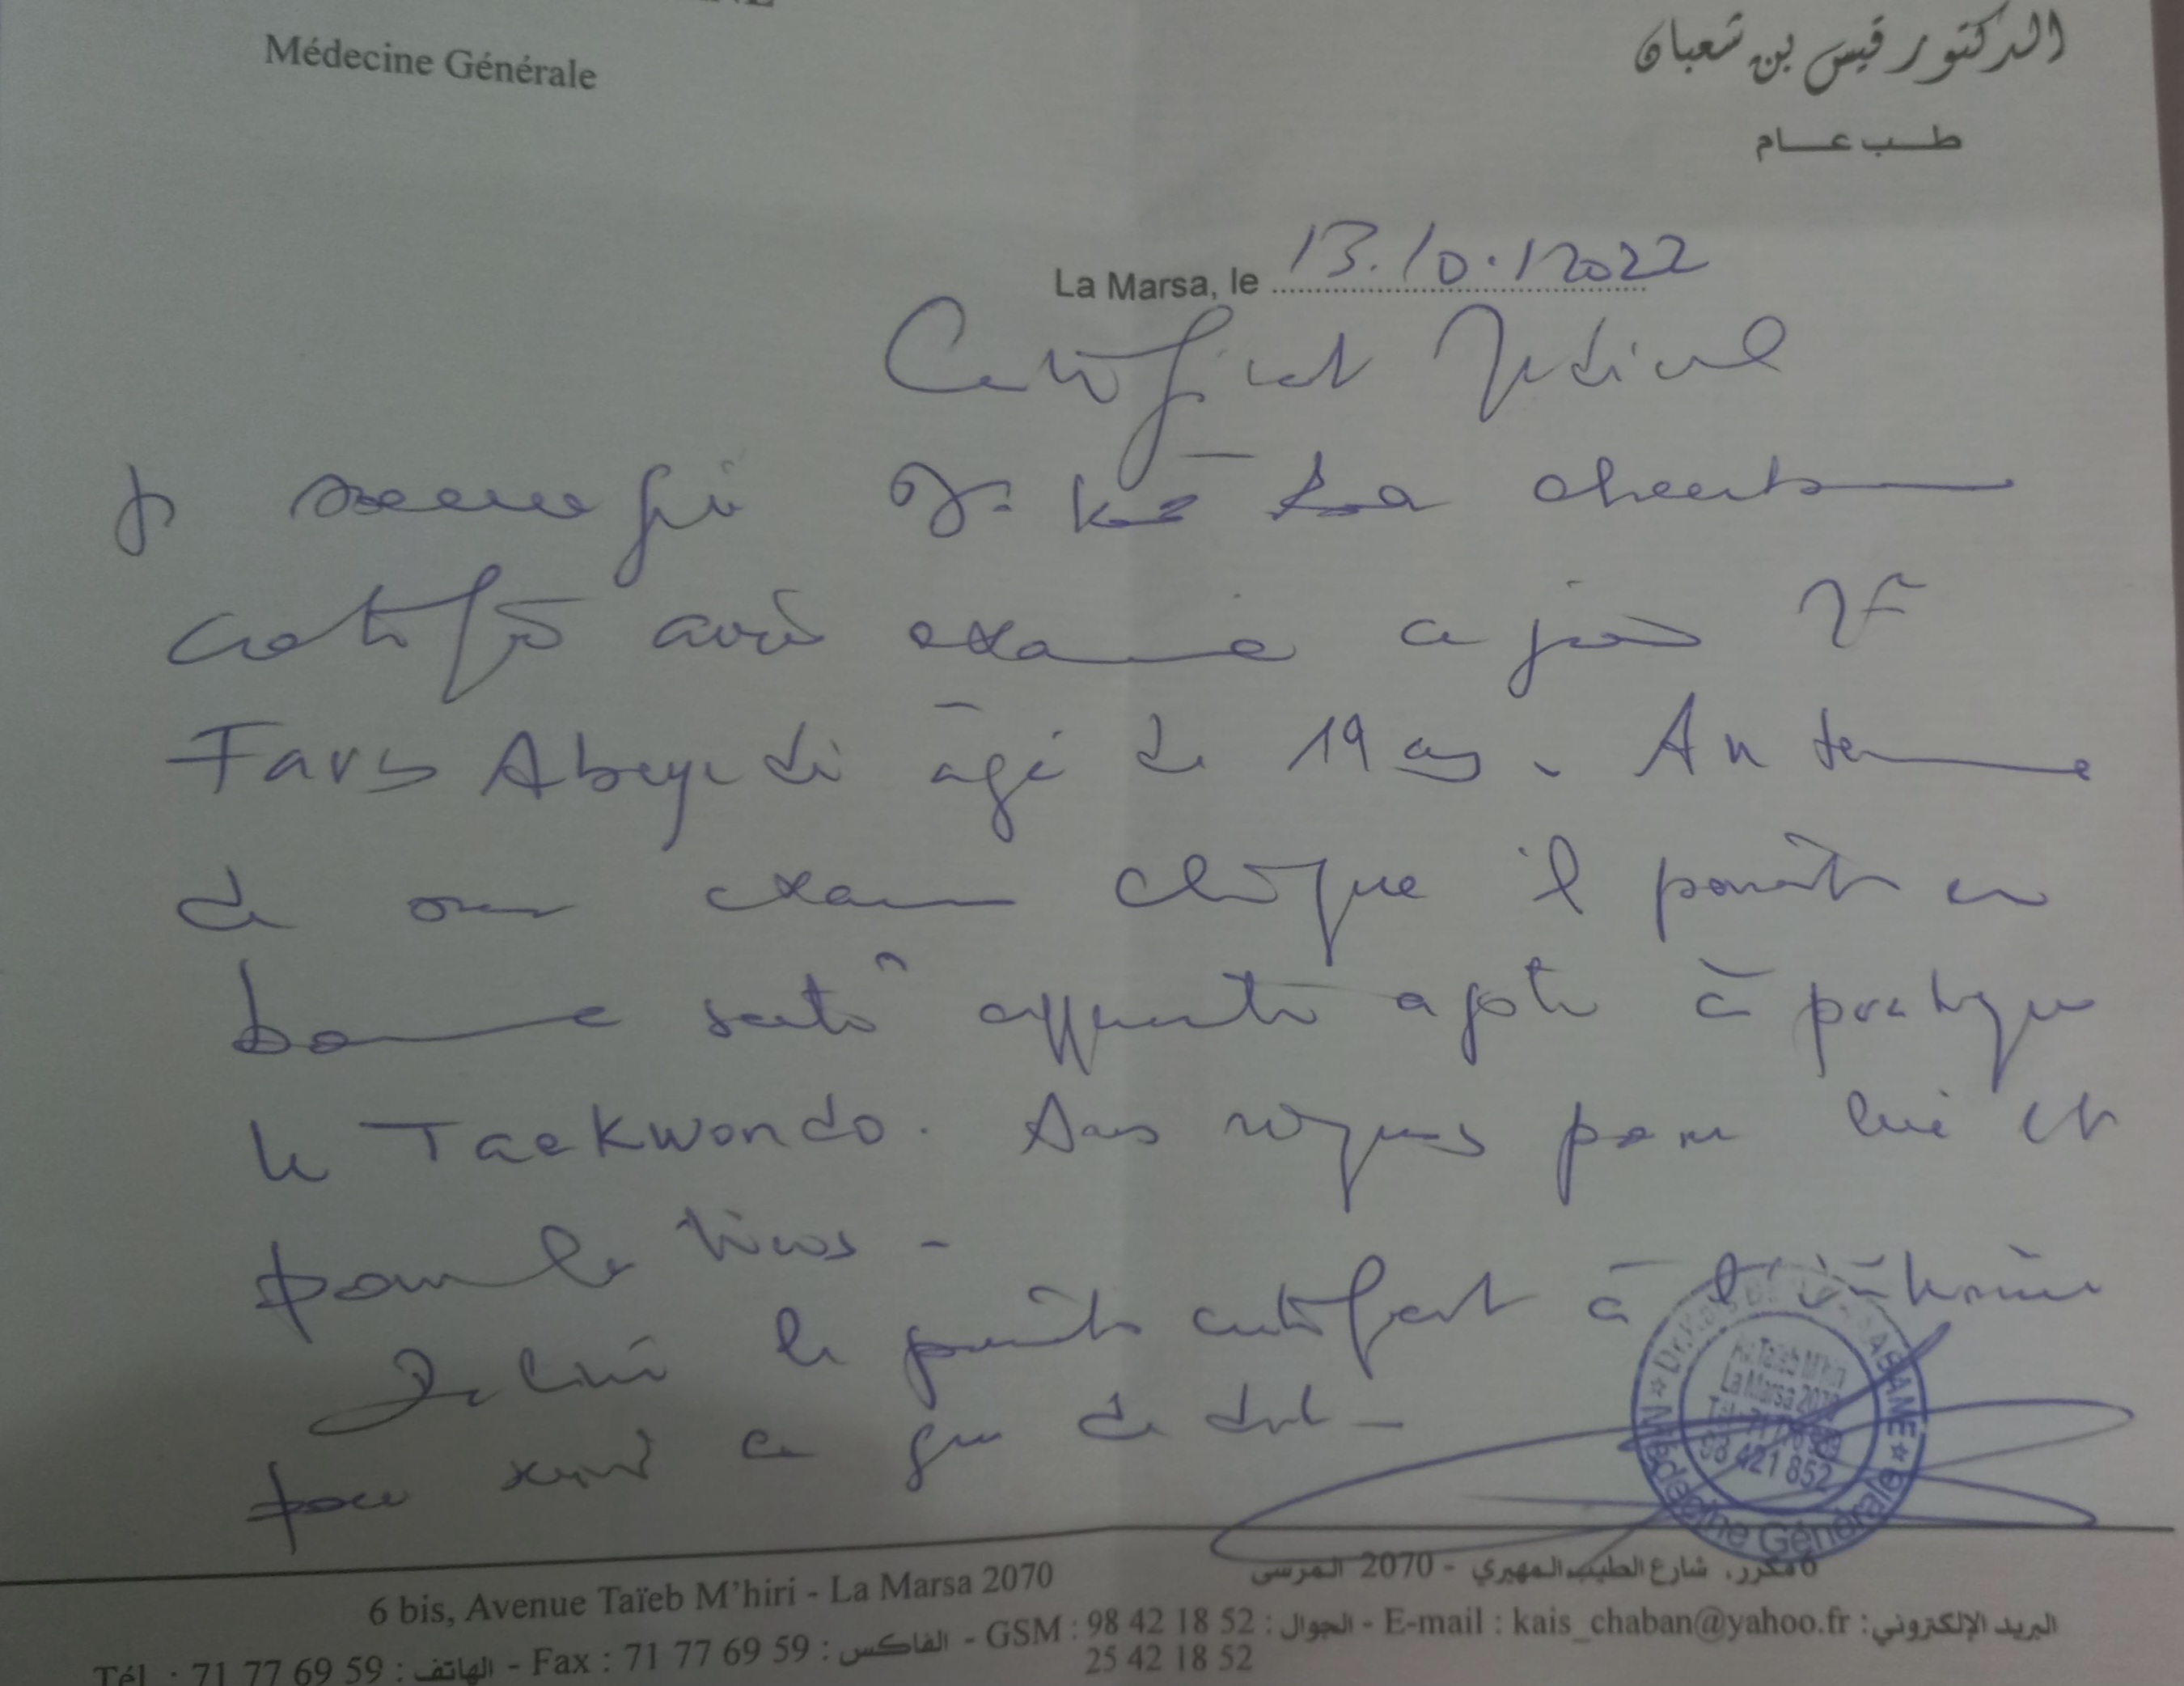 Médecine Générale
الدكتور قيس بن شعبان
طب عام
La Marsa, le 13.10.2022
Certificat Médical
Je soussigné Dr Chaabane
certifie avoir examiné ce jour
Fares Abeyedi âgé de 19 ans. Au terme
de mon examen clinique il paraît en
bonne santé apparente apte à pratiquer
le Taekwondo. Sans risques pour lui et
pour les tiers -
Délivré le présent certificat à l'intéressé
pour servir ce que de droit -
Av. Taïeb M'hiri
La Marsa 2070
98 421 852
Médecine Générale
6 bis, Avenue Taïeb M'hiri - La Marsa 2070
6 مكرر، شارع الطيب المهيري - 2070 المرسى
Tél. : 71 77 69 59 : الهاتف - Fax : 71 77 69 59 : الفاكس - GSM : 98 42 18 52 : الجوال - E-mail : kais_chaban@yahoo.fr : البريد الإلكتروني
25 42 18 52